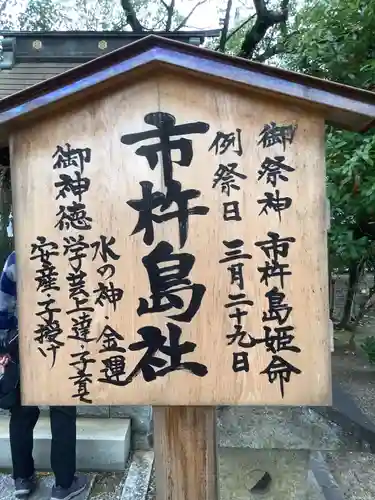 御祭神 市杵島姫命
例祭日 三月二十九日
市杵島社
御神徳 水の神・金運
学芸上達・子育
安産・子授け